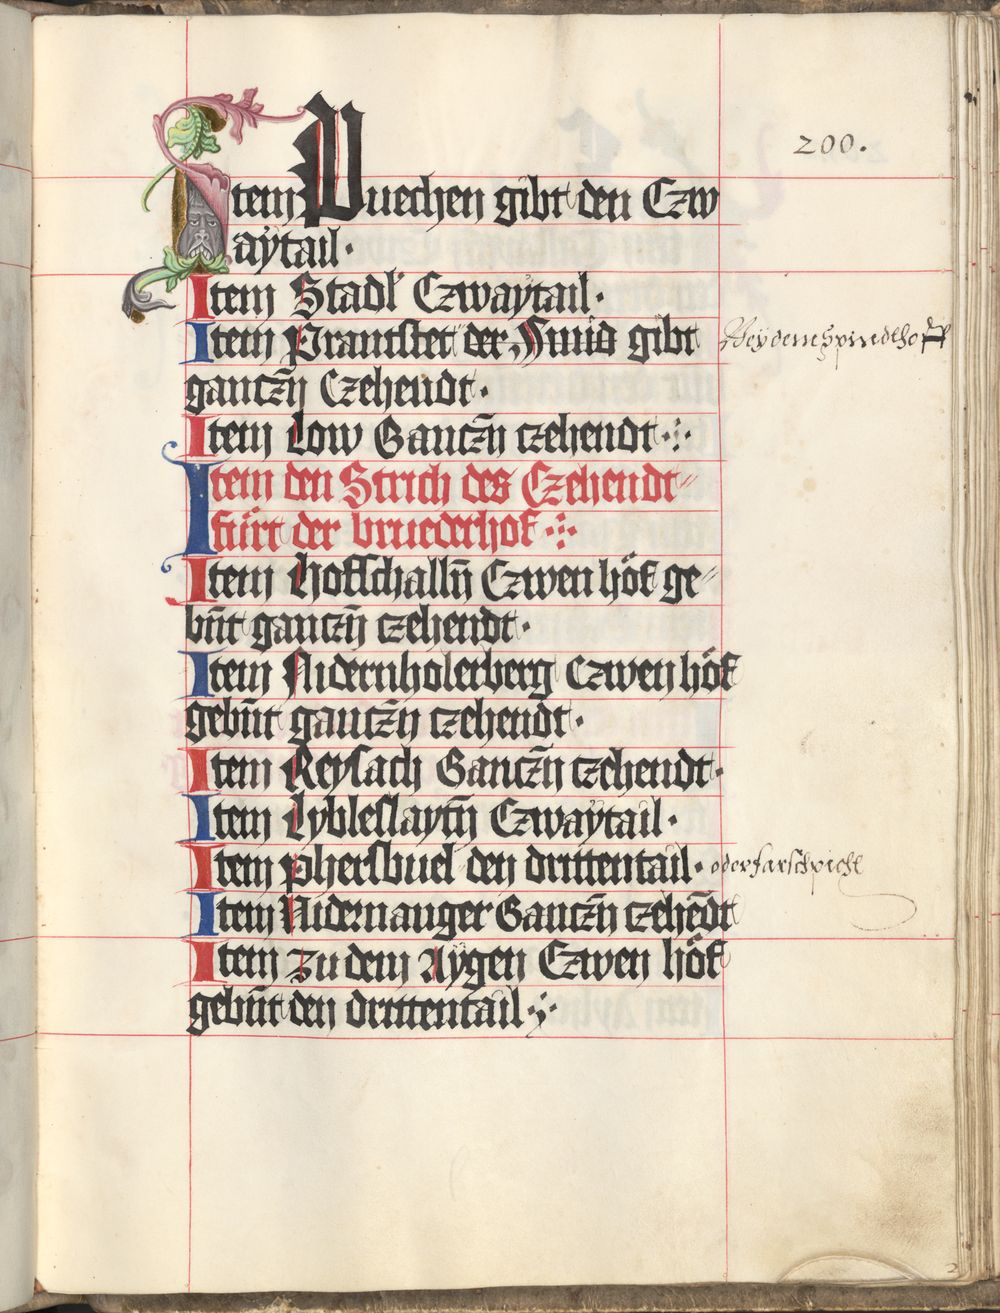 200.
Item Puechen gibt den Czw
aÿtail·
Item Stadl Czwaÿtail·
Item Prantstet der Smid gibt
ganczn̄ Czehendt·
Item Low Ganczn̄ czehendt·:·
Item den Strich des Czehendt〃
fürt der bruederhof·:·
Item Hoffschalln̄ Czwen höf ge〃
bn̄t ganczn̄ czehendt·
Item Nidernholerberg Czwen höf
gebn̄t ganczn̄ czehendt·
Item Reysach Ganczn̄ czehendt·
Item Lybleslaytn̄ Czwaÿtail·
Item phersbuel den drittentail· oder farschpichl
Item Nidernanger Ganczn̄ czehēdt
Item Zu dem Aÿgen Czwen höf
gebn̄t den drittentail·:·